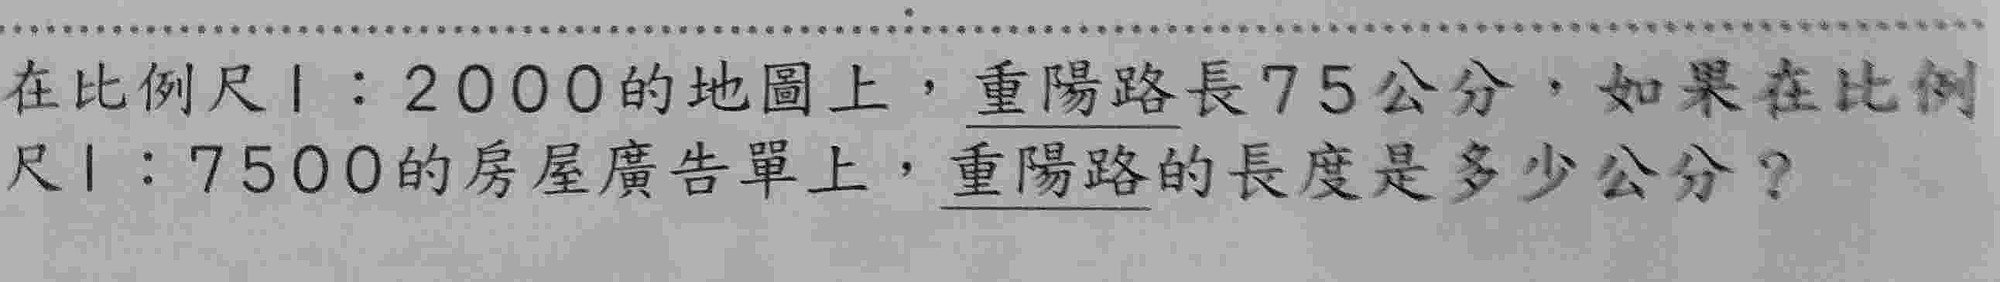 在比例尺1：2000的地圖上，重陽路長75公分，如果在比例
尺1：7500的房屋廣告單上，重陽路的長度是多少公分？